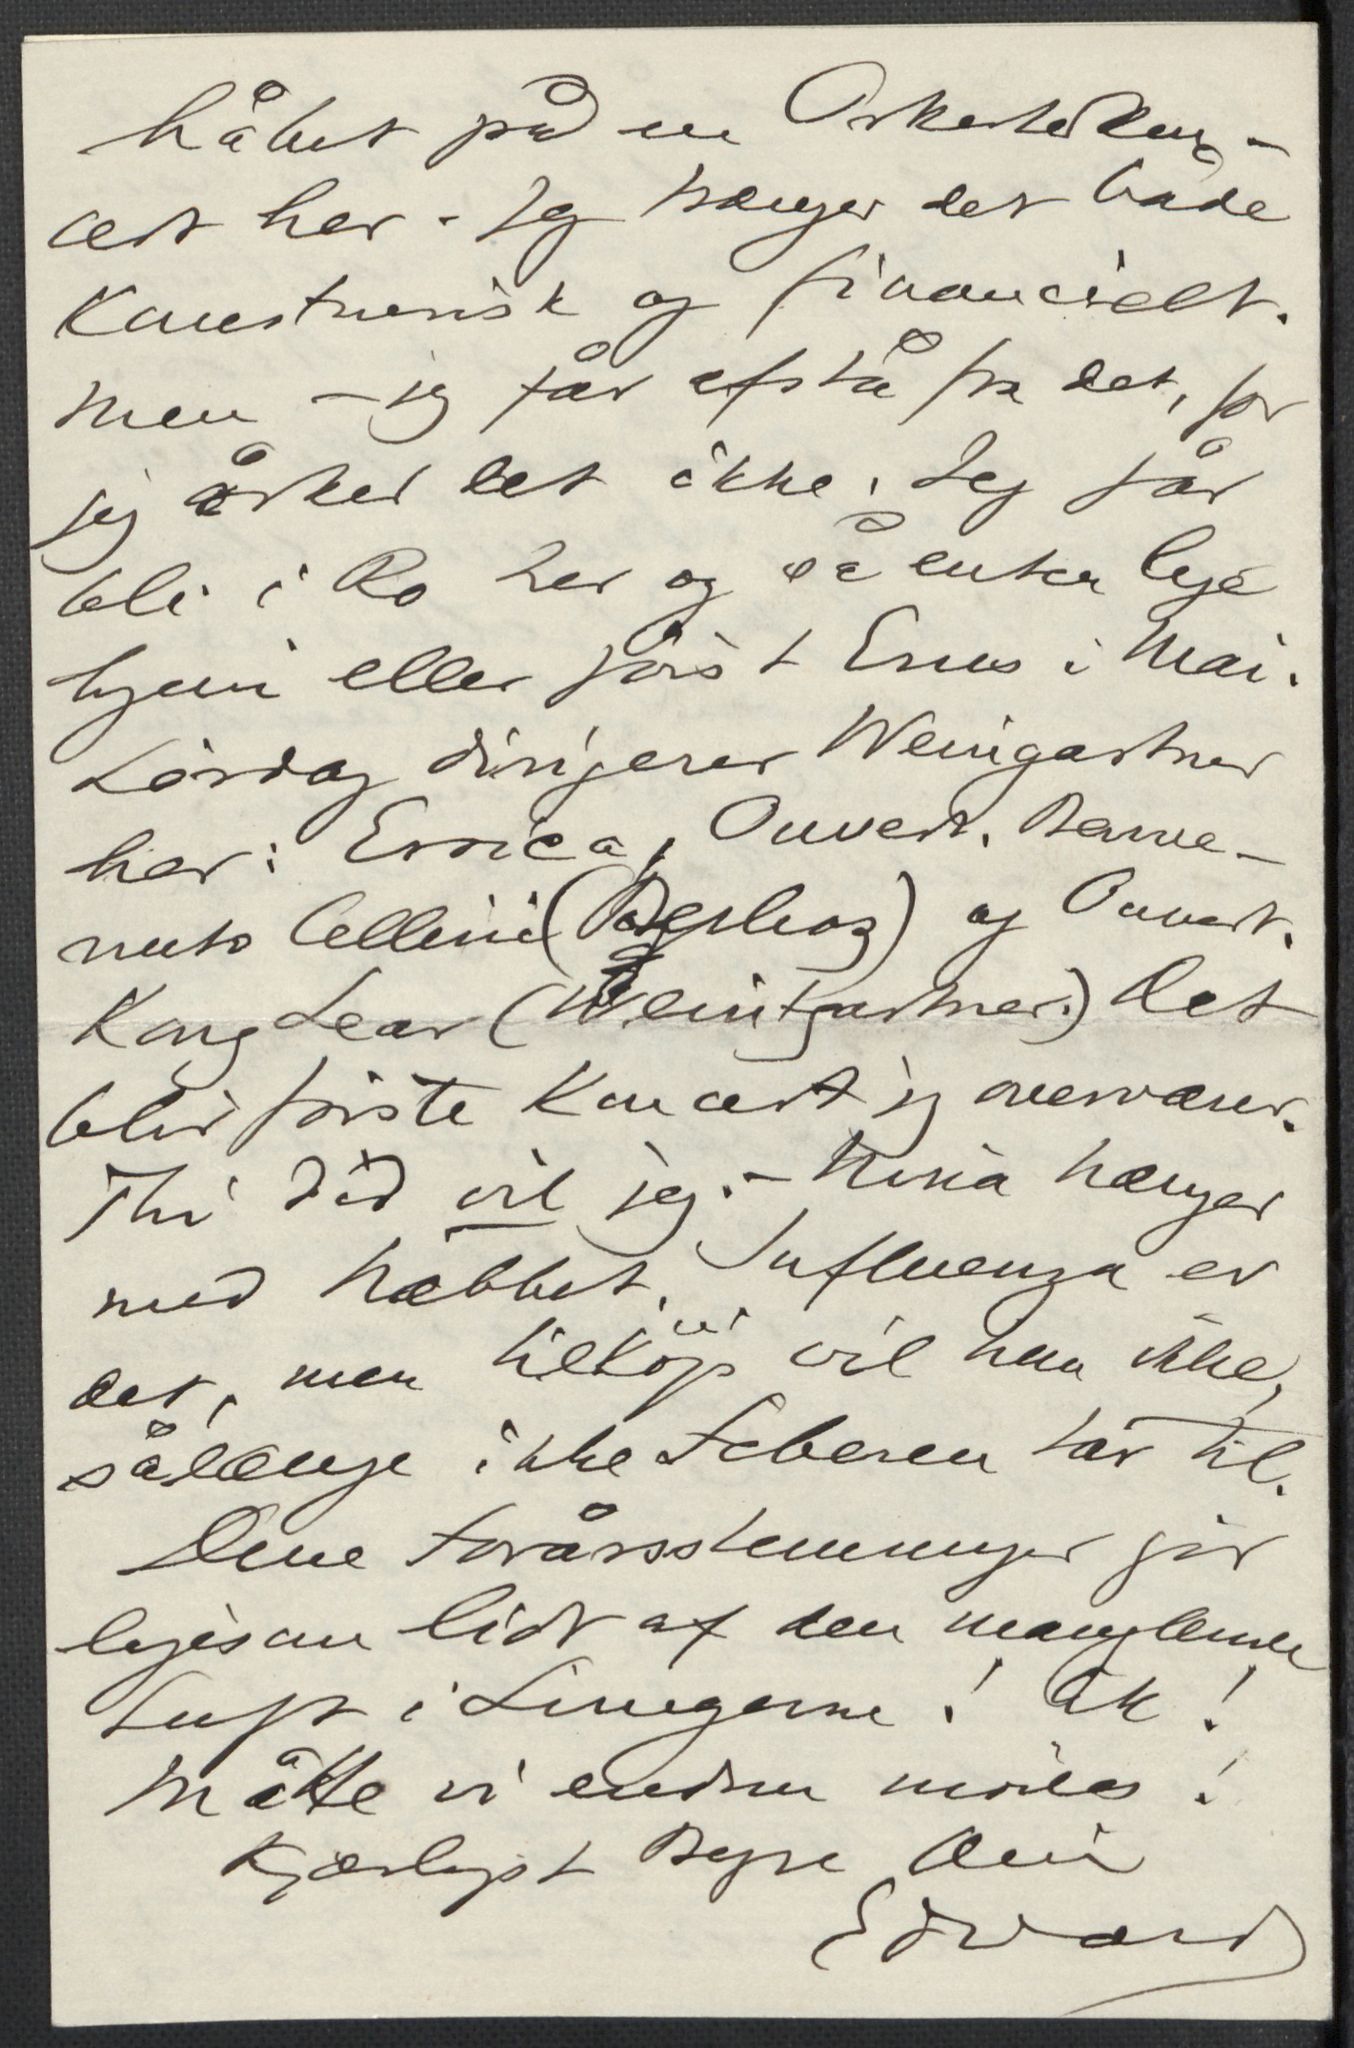 håbet på en Orkesterkon-
cert her. Jeg trænger det både
Kunstnerisk og financielt.
Men – jeg får afstå fra det, for
jeg orker det ikke. Jeg får
bli i Ro her og så enten leje
hjem eller först Ems i Mai.
Lördag dirigerer Weingartner
her: Eroica, Ouvert. Benve-
nuto Cellini (Berlioz) og Ouvert.
Kong Lear (Weingartner.) Det
blir förste Koncert jeg overværer.
Thi did vil jeg. – Nina hænger
med Næbbet. Influenza er
det, men tilköjs vil hun ikke,
sålænge ikke Feberen tar til.
Dine Forårsstemninger gir
ligesom lidt af den manglende
Luft i Lungerne! Ak!
Måtte vi endnu mödes!
Kjærligst Beyer Din
Edvard